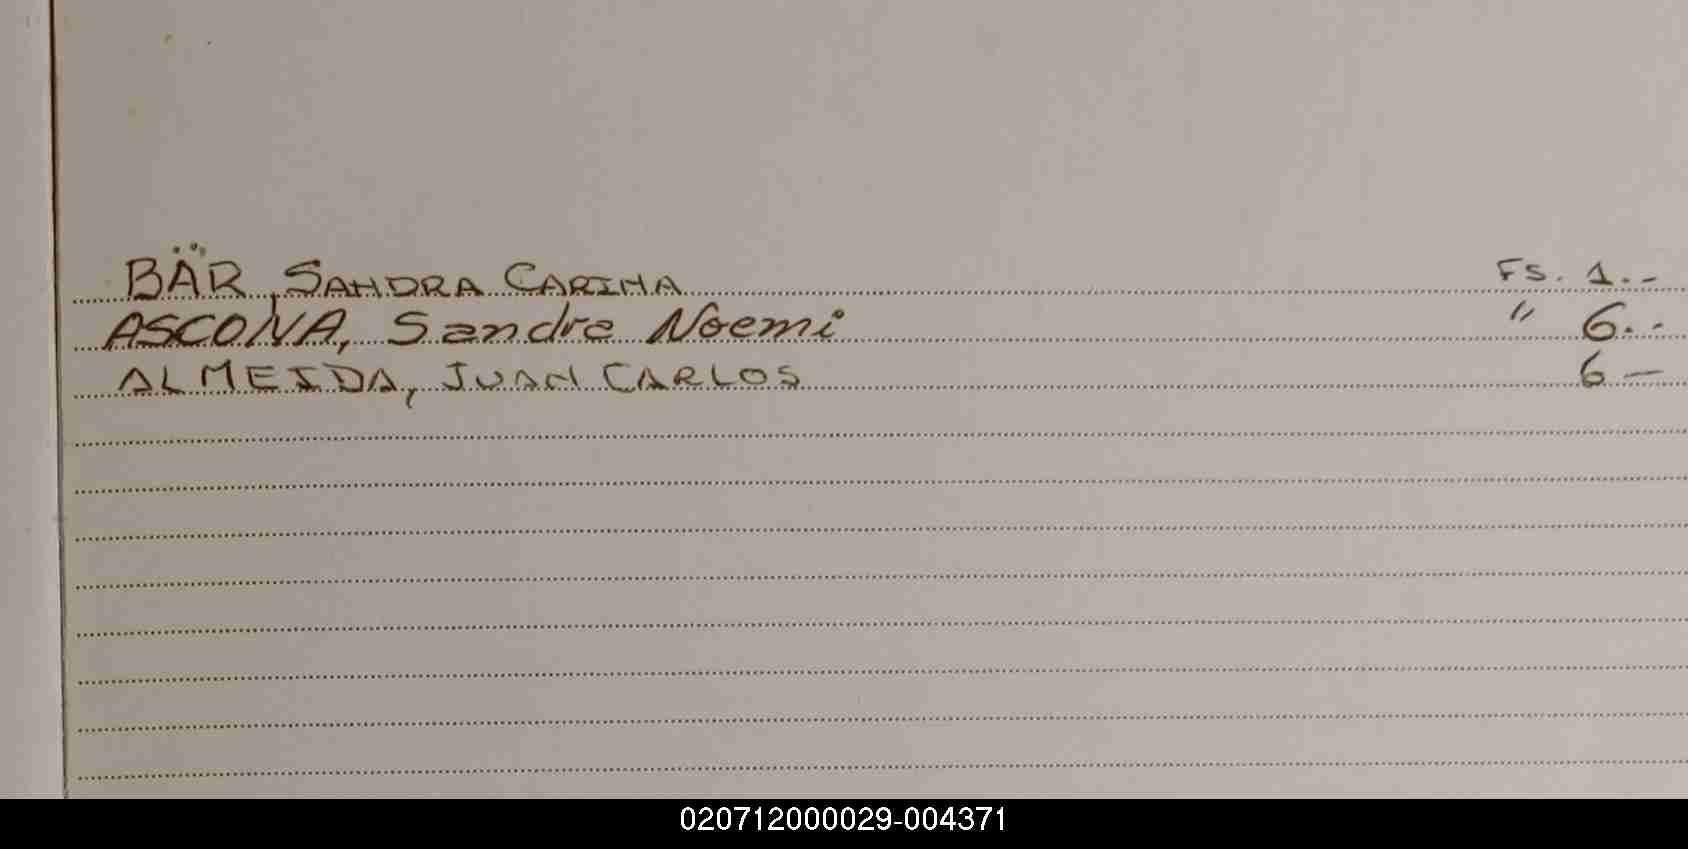 BÄR, SANDRA CARINA Fs. 1.-
ASCONA, Sandra Noemi " 6.-
ALMEIDA, JUAN CARLOS 6 —
020712000029-004371